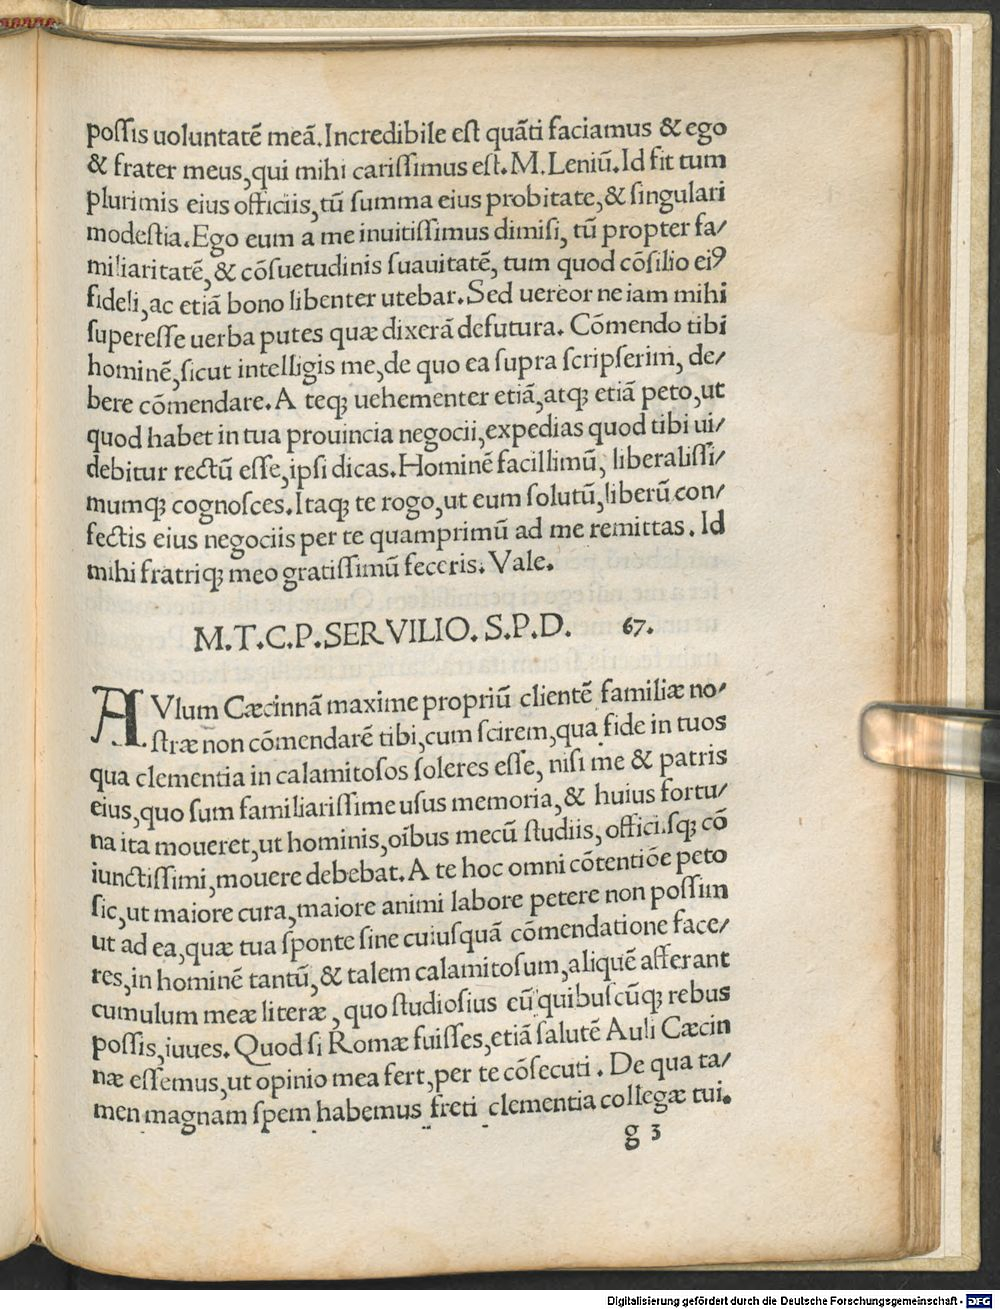 possis uoluntatẽ meã. Incredibile est quãti faciamus & ego
& frater meus, qui mihi carissimus est. M. Leniũ. Id fit tum
plurimis eius officiis, tũ summa eius probitate, & singulari
modestia. Ego eum a me inuitissimus dimisi, tũ propter fa/
miliaritatẽ, & cõsuetudinis suauitatẽ, tum quod cõsilio eiꝰ
fideli, ac etiã bono libenter utebar. Sed uereor ne iam mihi
superesse uerba putes quæ dixerã defutura. Cõmendo tibi
hominẽ, sicut intelligis me, de quo ea supra scripserim, de/
bere cõmendare. A teqꝫ uehementer etiã, atqꝫ etiã peto, ut
quod habet in tua prouincia negocii, expedias quod tibi ui/
debitur rectũ esse, ipsi dicas. Hominẽ facillimũ, liberalissi/
mumqꝫ cognosces. Itaqꝫ te rogo, ut eum solutũ, liberũ con/
fectis eius negociis per te quamprimũ ad me remittas. Id
mihi fratriqꝫ meo gratissimũ feceris. Vale.
M. T. C. P. SERVILIO. S. P. D. 67.
AVlum Cæcinnã maxime propriũ clientẽ familiæ no/
stræ non cõmendarẽ tibi, cum scirem, qua fide in tuos
qua clementia in calamitosos soleres esse, nisi me & patris
eius, quo sum familiarissime usus memoria, & huius fortu/
na ita moueret, ut hominis, oĩbus mecũ studiis, officiisqꝫ cõ
iunctissimi, mouere debebat. A te hoc omni cõtentiõe peto
sic, ut maiore cura, maiore animi labore petere non possim
ut ad ea, quæ tua sponte sine cuiusquã cõmendatione face/
res, in hominẽ tantũ, & talem calamitosum, aliquẽ afferant
cumulum meæ literæ, quo studiosius eũ quibuscũqꝫ rebus
possis, iuues. Quod si Romæ fuisses, etiã salutẽ Auli Cæcin
næ essemus, ut opinio mea fert, per te cõsecuti. De qua ta/
men magnam spem habemus freti clementia collegæ tui.
g 3
Digitalisierung gefördert durch die Deutsche Forschungsgemeinschaft - DFG